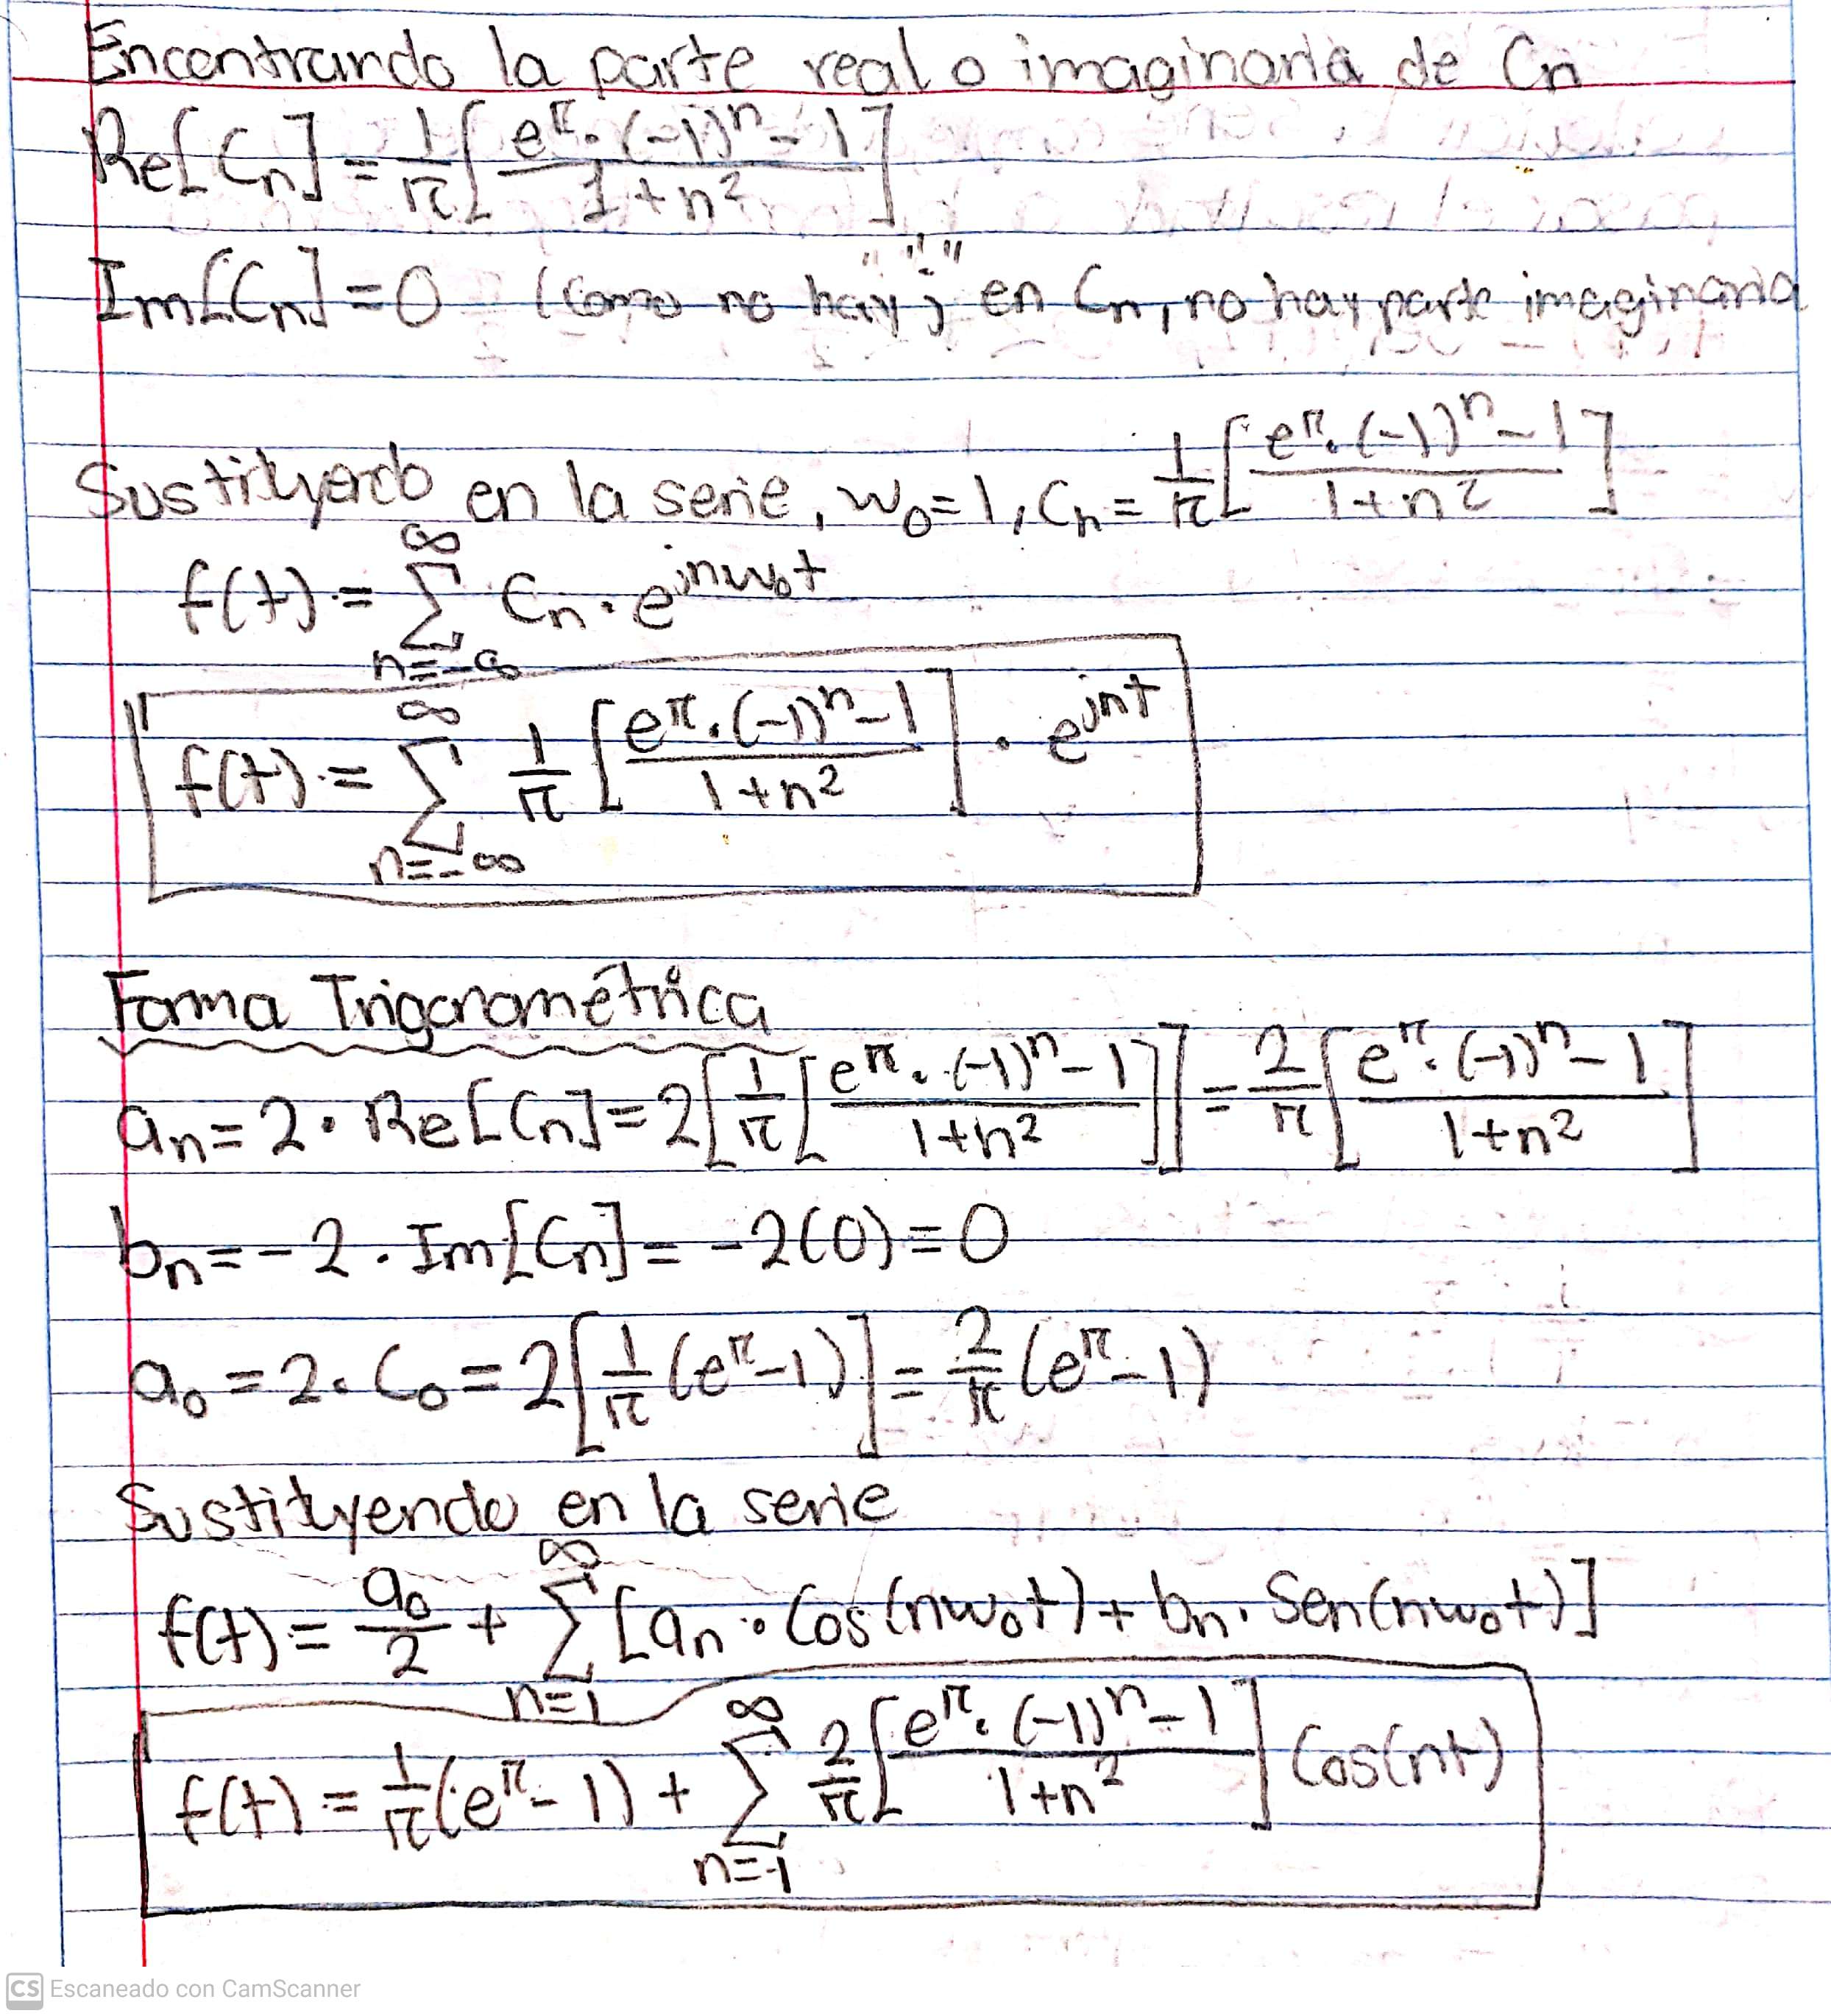 Encontrando la parte real o imaginaria de Cn
Re[Cn] = 1/π [ (e^π · (-1)^n - 1) / (1+n²) ]
Im[Cn] = 0 (Como no hay "j" en Cn, no hay parte imaginaria
Sustituyendo en la serie, w₀=1, Cn = 1/π [ (e^π · (-1)^n - 1) / (1+n²) ]
f(t) = ∑_{n=-∞}^{∞} Cn · e^{jnw₀t}
f(t) = ∑_{n=-∞}^{∞} 1/π [ (e^π · (-1)^n - 1) / (1+n²) ] · e^{jnt}
Forma Trigonométrica
an = 2 · Re[Cn] = 2[ 1/π [ (e^π · (-1)^n - 1) / (1+n²) ] ] = 2/π [ (e^π · (-1)^n - 1) / (1+n²) ]
bn = -2 · Im[Cn] = -2(0) = 0
a₀ = 2 · C₀ = 2[ 1/π (e^π - 1) ] = 2/π (e^π - 1)
Sustituyendo en la serie
f(t) = a₀/2 + ∑_{n=1}^{∞} [an · Cos(nw₀t) + bn · Sen(nw₀t)]
f(t) = 1/π (e^π - 1) + ∑_{n=1}^{∞} 2/π [ (e^π · (-1)^n - 1) / (1+n²) ] Cos(nt)
CS Escaneado con CamScanner